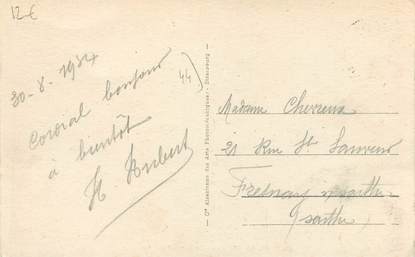 12 €
30-8-1934
Cordial bonjour
à bientôt
H Hubert
44
Cie Alsacienne des Arts Photomécaniques, Strasbourg
Madame Chevreux
21 Rue St Sauveur
Fresnay s/ sarthe
Sarthe